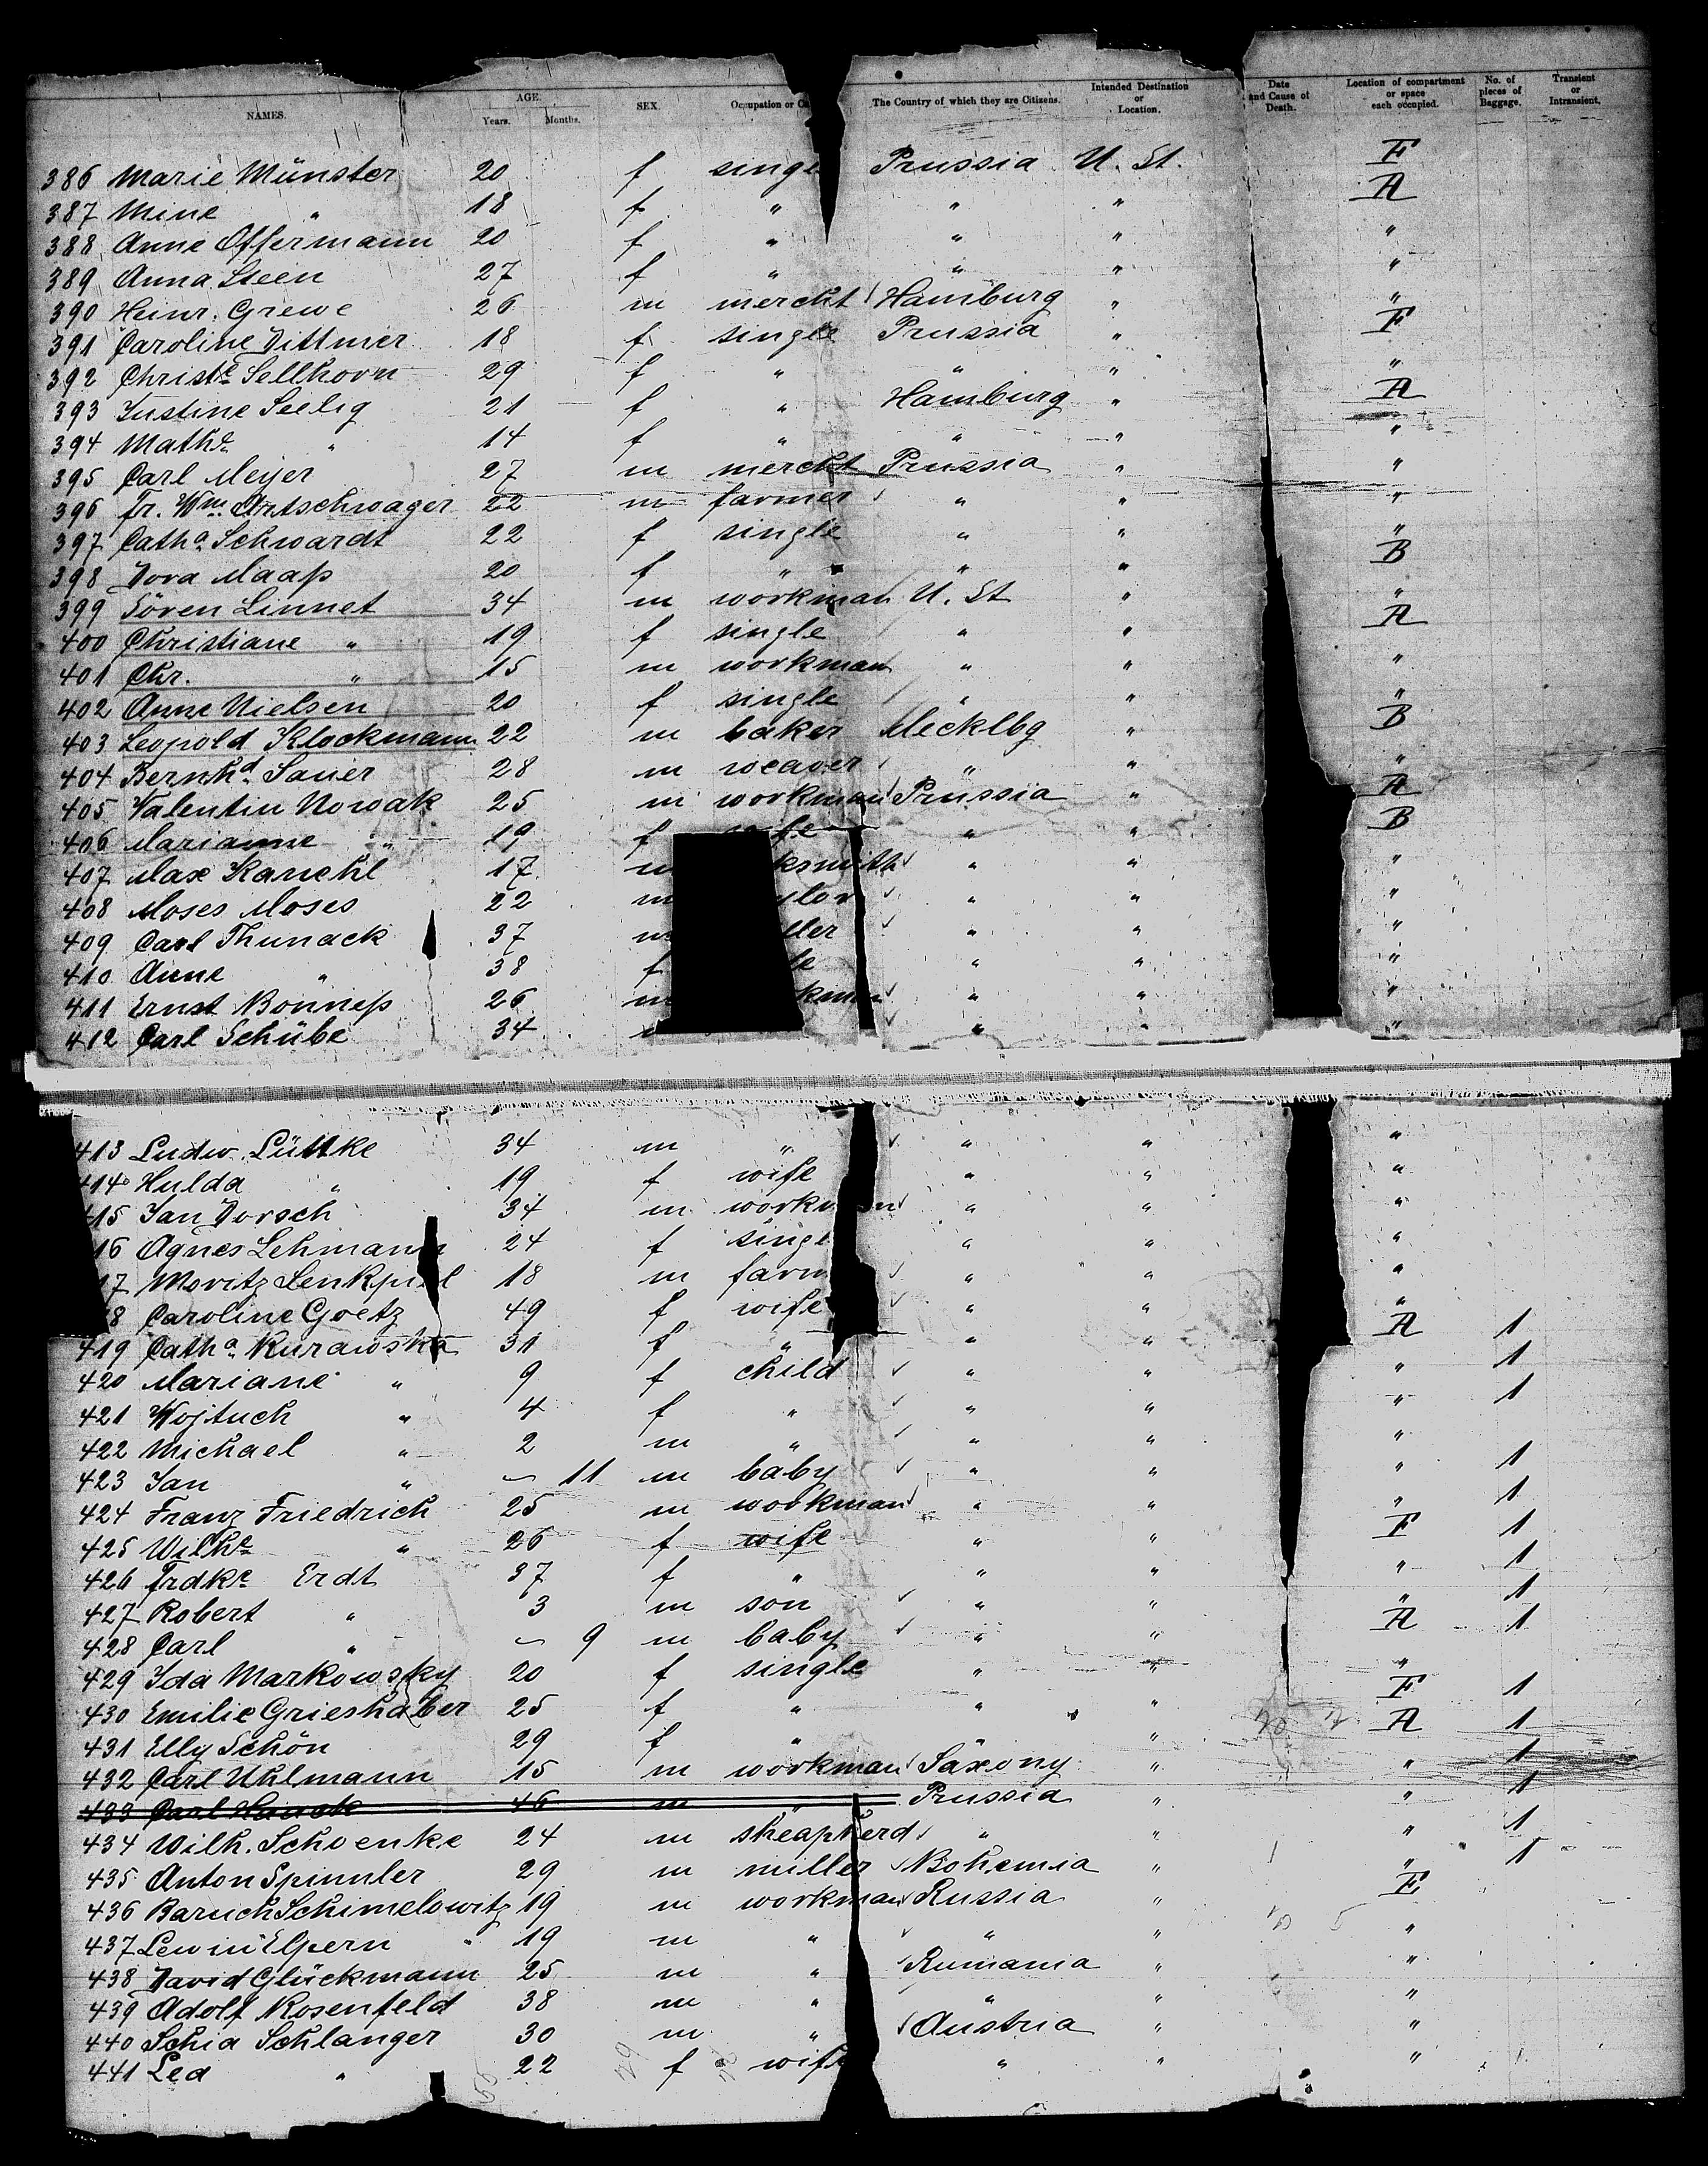 NAMES. AGE. Years. Months. SEX. Occupation or Ca The Country of which they are Citizens. Intended Destination or Location. Date and Cause of Death. Location of compartment or space each occupied. No. of pieces of Baggage. Transient or Intransient.
386 Marie Münster 20 f singl Prussia U. St. F
387 Mine " 18 f " " " A
388 Anne Offermann 20 f " " " "
389 Anna Steen 27 f " " " "
390 Heinr. Grewe 26 m mercht Hamburg " "
391 Caroline Dittmer 18 f single Prussia " F
392 Christe Sellhorn 29 f " " " "
393 Justine Seelig 21 f " Hamburg " A
394 Mathe " 14 f " " " "
395 Carl Meyer 27 m mercht Prussia " "
396 Fr. Wm. Artschwager 22 m farmer " " "
397 Catha Schwardt 22 f single " " "
398 Dora Maaß 20 f " " " B
399 Sören Linnet 34 m workman U. St " "
400 Christiane " 19 f single " " A
401 Chr. " 15 m workman " " "
402 Anne Nielsen 20 f single " " "
403 Leopold Klockmann 22 m baker Mecklbg " B
404 Bernhd Sauer 28 m weaver " " "
405 Valentin Nowak 25 m workman Prussia " A
406 Marianne " 19 f wife " " B
407 Max Kanehl 17 m ksmith " " "
408 Moses Moses 22 m ylor " " "
409 Carl Thunack 37 m ller " " "
410 Anne " 38 f fe " " "
411 Ernst Bonneß 26 m kman " " "
412 Carl Schübe 34 " " "
413 Ludw. Lüttke 34 m " " " "
414 Hulda " 19 f wife " " "
415 Jan Dorsch 34 m workman " " "
16 Agnes Lehmann 24 f singl " " "
17 Moritz Senkpiel 18 m farm " " "
8 Caroline Goetz 49 f wife " " "
419 Catha Kurawska 31 f " " " A 1
420 Mariane " 9 f child " " " 1
421 Wojtuch " 4 f " " " " 1
422 Michael " 2 m " " " "
423 Jan " – 11 m baby " " " 1
424 Franz Friedrich 25 m workman " " " 1
425 Wilhe " 26 f wife " " F 1
426 Frdke Erdt 37 f " " " " 1
427 Robert " 3 m son " " " 1
428 Carl " – 9 m baby " " A 1
429 Ida Markowsky 20 f single " " "
430 Emilie Grieshaber 25 f " " " F 1
431 Elly Schön 29 f " " " A 1
432 Carl Uhlmann 15 m workman Saxony " " 1
433 Carl Hauck 46 m " Prussia " " 1
434 Wilh. Schoenke 24 m sheapherd " " " 1
435 Anton Spinnler 29 m miller Bohemia " " 1
436 Baruch Schimelowitz 19 m workman Russia " E
437 Lewin Elpern 19 m " " " "
438 David Glückmann 25 m " Rumania " "
439 Adolf Rosenfeld 38 m " " " "
440 Schia Schlanger 30 m " Austria " "
441 Lea " 22 f wife " " "